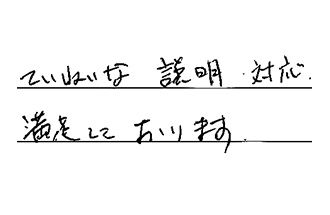 ていねいな 説明・対応.
満足して おります.